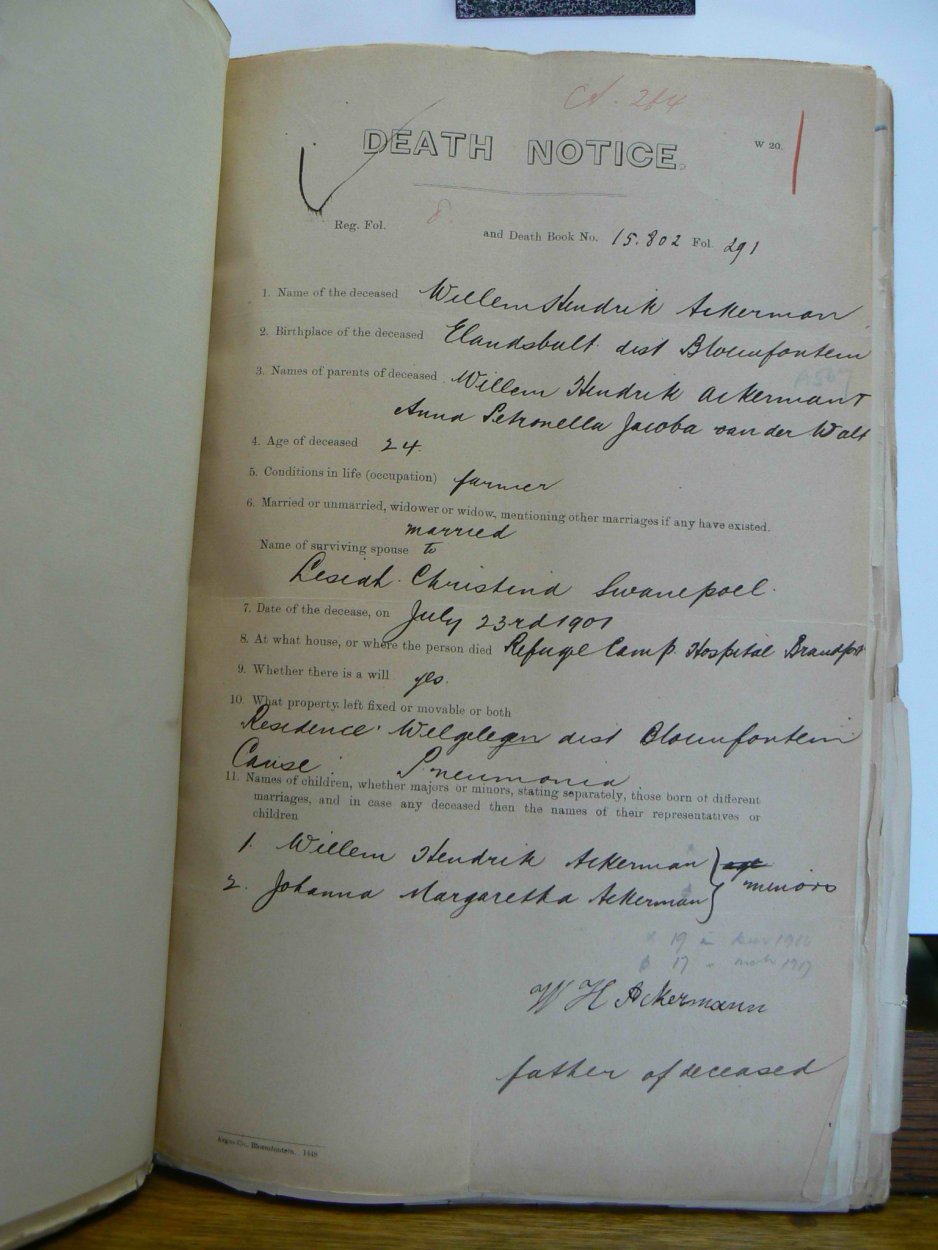 DEATH NOTICE.
W 20.
Reg. Fol. 8. and Death Book No. 15.802 Fol. 291
1. Name of the deceased Willem Hendrik Ackerman
2. Birthplace of the deceased Elandsbult dist Bloemfontein
3. Names of parents of deceased Willem Hendrik Ackerman &
Anna Petronella Jacoba van der Walt
4. Age of deceased 24
5. Conditions in life (occupation) farmer
6. Married or unmarried, widower or widow, mentioning other marriages if any have existed.
married
Name of surviving spouse to
Christina Swanepoel.
7. Date of the decease, on July 23rd 1901
8. At what house, or where the person died Refuge Camp Hospital
9. Whether there is a will yes.
10. What property left fixed or movable or both
Residence Welgelegen dist Bloemfontein
Cause Pneumonia
11. Names of children, whether majors or minors, stating separately, those born of different
marriages, and in case any deceased then the names of their representatives or
children
1. Willem Hendrik Ackerman
minors
2. Johanna Margaretha Ackerman
W H Ackermann
father of deceased
Argus Co., Bloemfontein. 1448